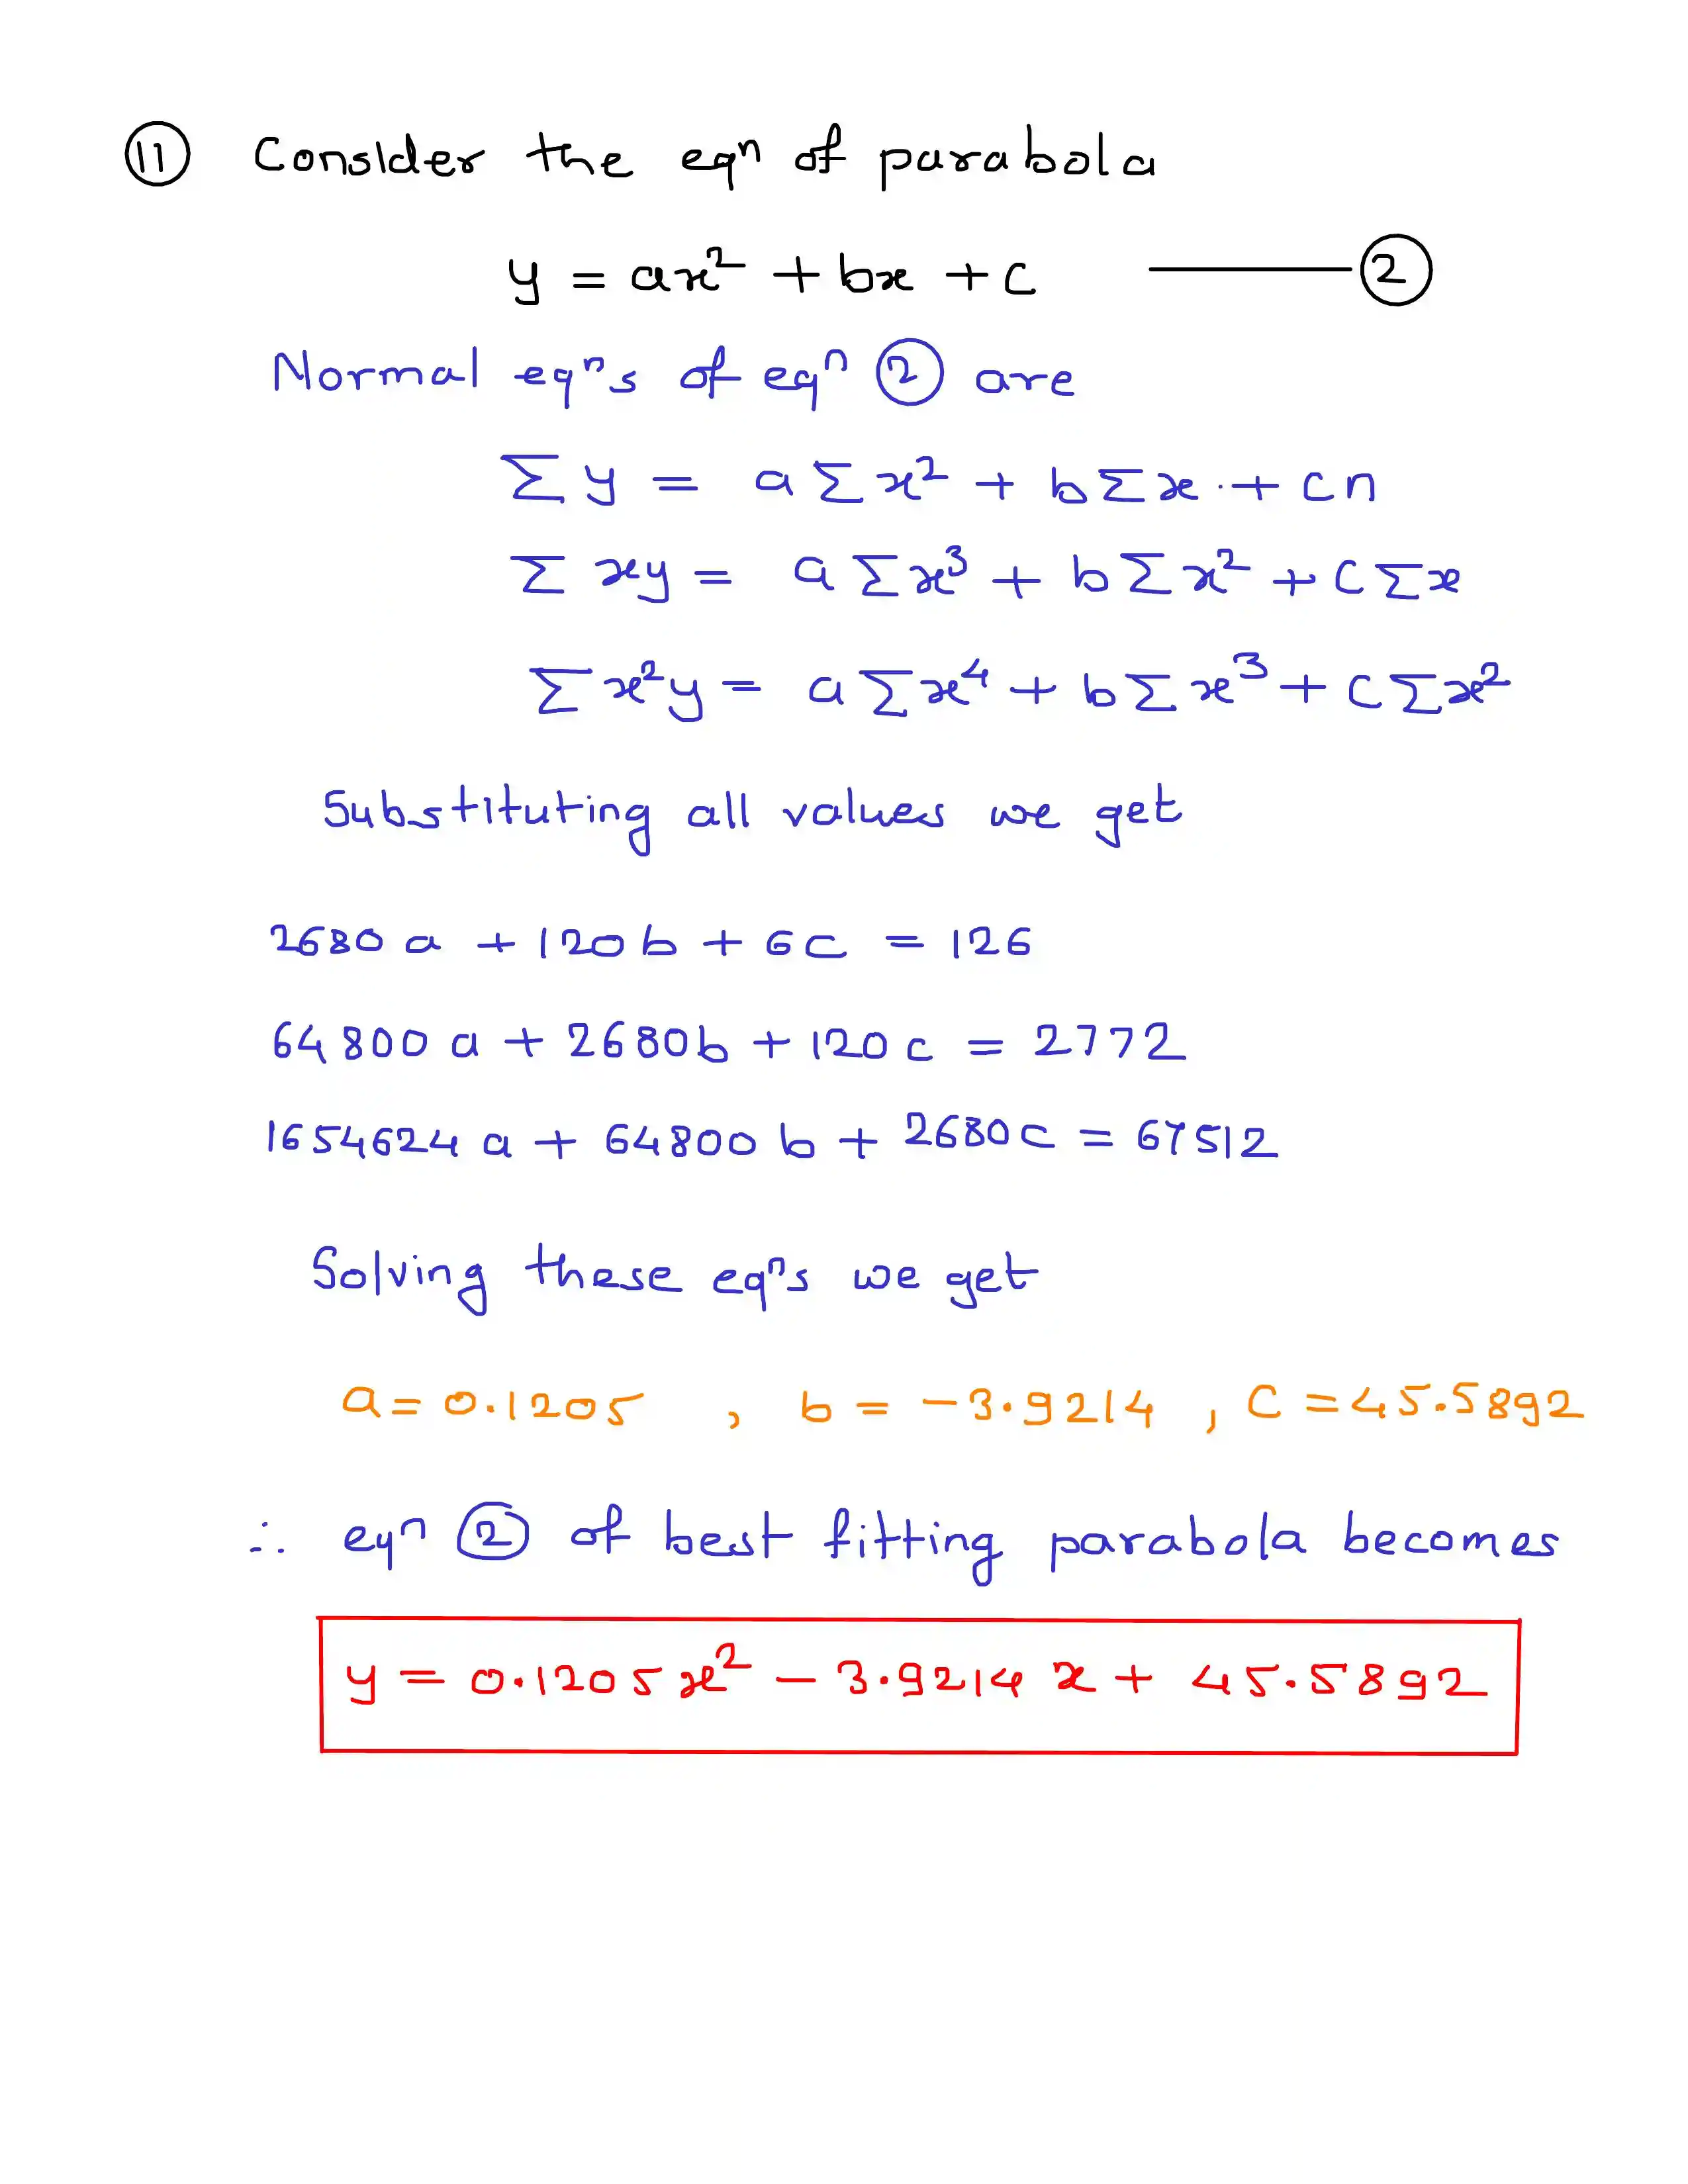 ⑪ Consider the eqⁿ of parabola
y = ax² + bx + c ——— ②
Normal eqⁿs of eqⁿ ② are
Σy = aΣx² + bΣx + cn
Σxy = aΣx³ + bΣx² + cΣx
Σx²y = aΣx⁴ + bΣx³ + cΣx²
Substituting all values we get
2680a + 120b + 6c = 126
64800a + 2680b + 120c = 2772
1654624a + 64800b + 2680c = 67512
Solving these eqⁿs we get
a = 0.1205 , b = -3.9214 , C = 45.5892
∴ eqⁿ ② of best fitting parabola becomes
y = 0.1205x² - 3.9214x + 45.5892